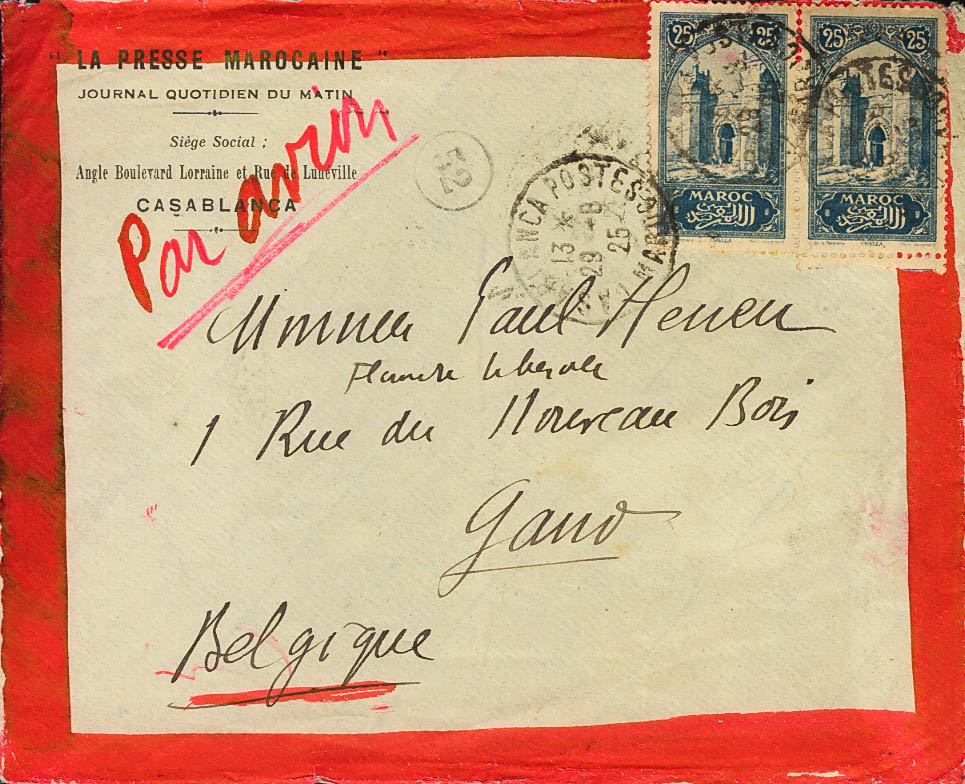 "LA PRESSE MAROCAINE"
JOURNAL QUOTIDIEN DU MATIN
Siège Social :
Angle Boulevard Lorraine et Rue de Lunéville
CASABLANCA
Par avion
32
25 25
MAROC
CHELLA
25 25
MAROC
CASABLANCA POSTES
13 * 
29 - 8
25
MAROC
Monsieur Paul
Flandre libérale
1 Rue du Nouveau Bois
Gand
Belgique